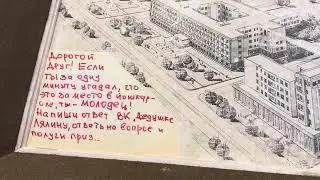 Дорогой
Друг! Если
ты за одну
минуту угадал, что
это за место в Йошкар-
оле, ты - МОЛОДЕЦ!
Напиши ответ ВК, Дедушке
Лялину, ответь на вопрос и
получи приз..